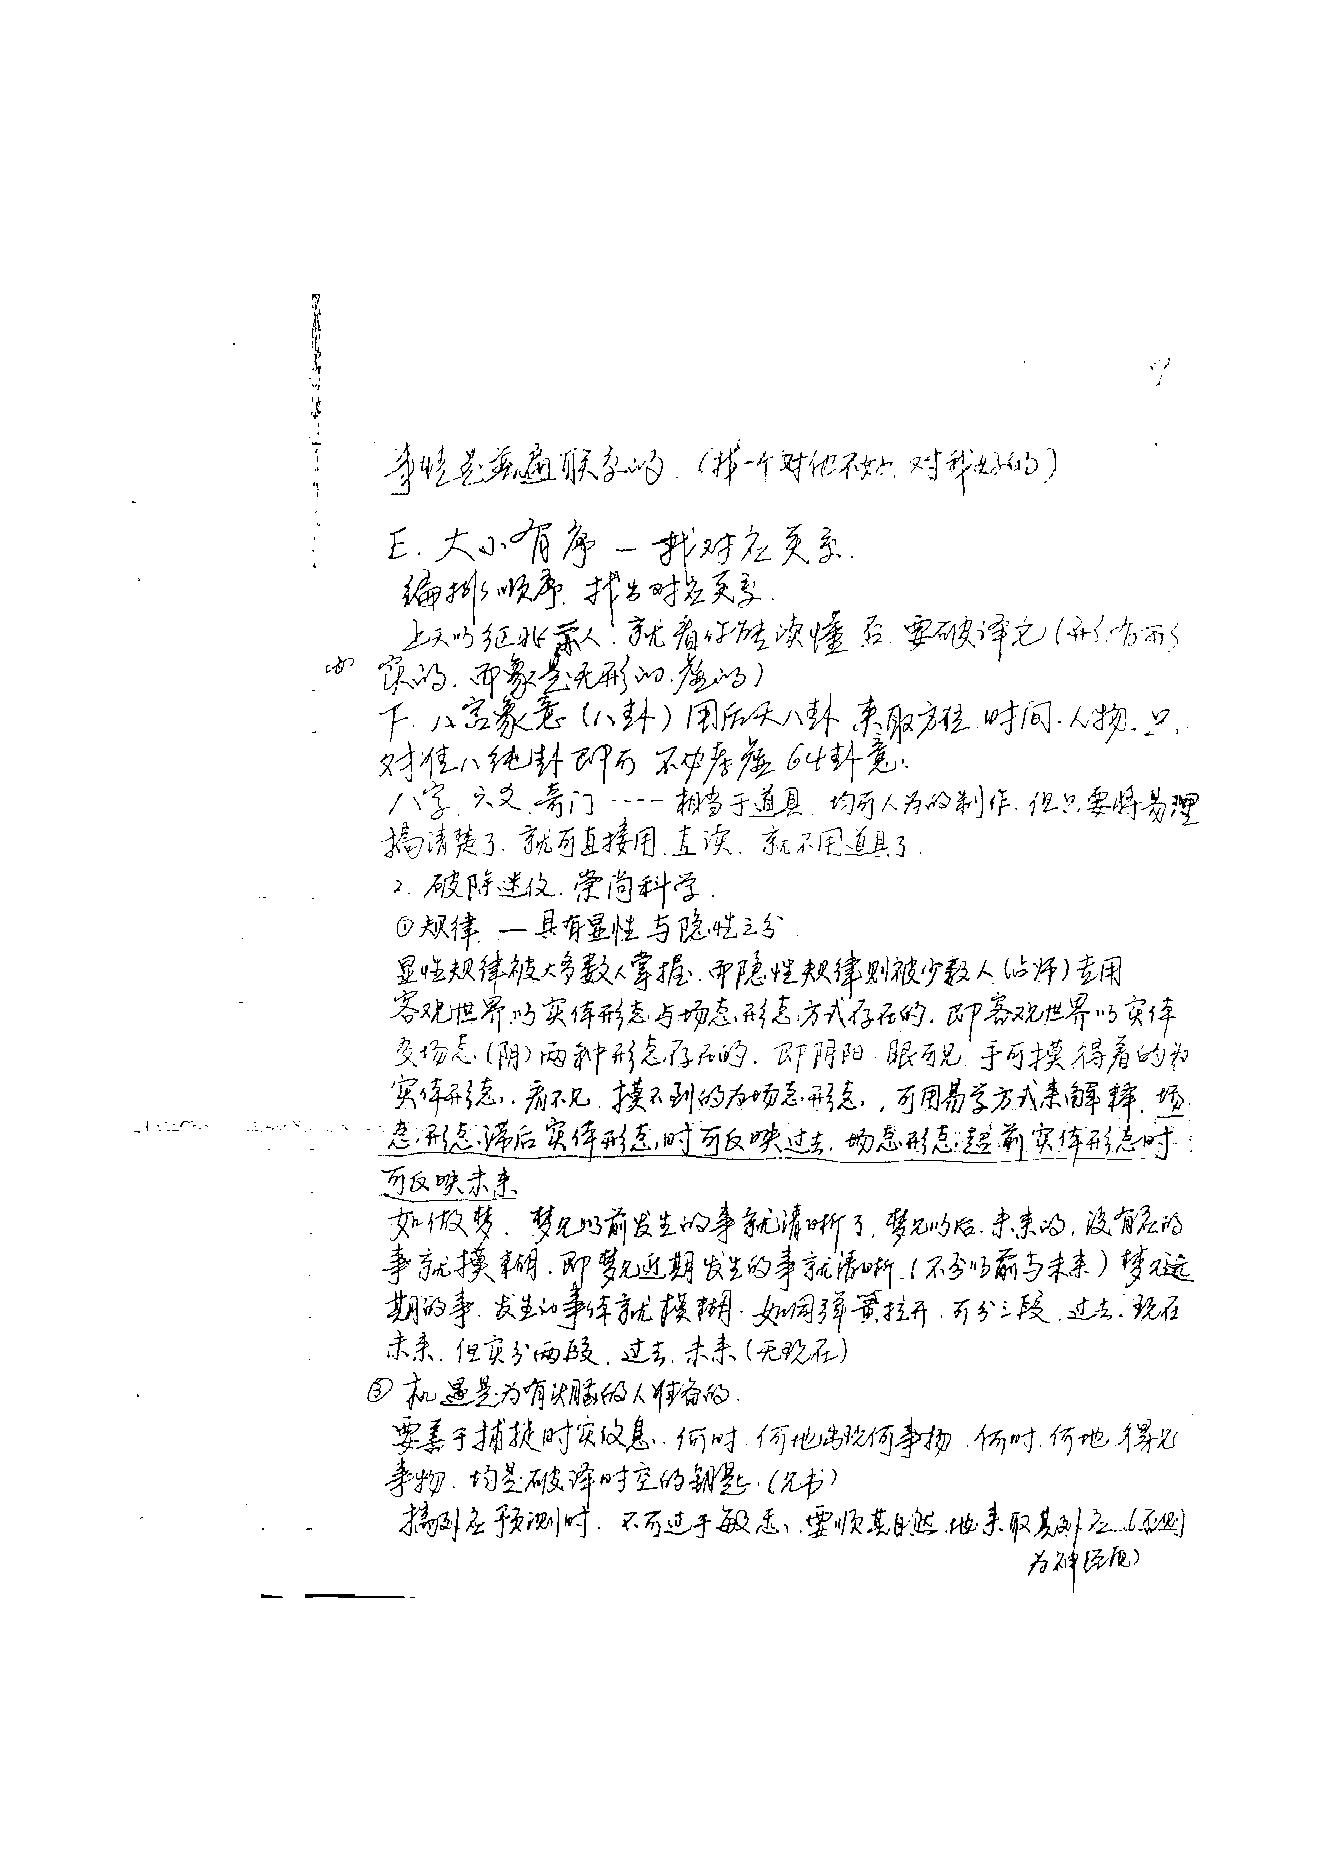 9
事情是普遍联系的.（找一个对他不好.对我好的）
E.大小有序 — 找对应关系.
编排顺序.找出对应关系.
上天以征兆示人.就看你能读懂否.要破译它（形为可形
实的.而象是无形的.虚的）
F.八宫象意（八卦）用后天八卦来取方位.时间.人物.只.
对准八纯卦即可 不必考虑64卦意.
八字.六爻.奇门……相当于道具.均可人为的制作.但只要将易理
搞清楚了.就可直接用.直读.就不用道具了.
2.破除迷信.崇尚科学.
①规律.—具有显性与隐性之分.
显性规律被大多数人掌握.而隐性规律则被少数人（占师）专用
客观世界以实体形态与场态形态方式存在的.即客观世界以实体
及场态（阴）两种形态存在的.即阴阳.眼可见.手可摸得着的为
实体形态.看不见.摸不到的为场态形态.可用易学方式来解释.场
态形态滞后实体形态时可反映过去.场态形态超前实体形态时
可反映未来
如做梦.梦见以前发生的事就清晰了.梦见以后.未来的.没有在的
事就摸糊.即梦见近期发生的事就清晰.（不分以前与未来）梦见远
期的事.发生的事体就模糊.如同弹簧拉开.可分三段.过去.现在
未来.但实分两段.过去.未来（无现在）
③机遇是为有头脑的人准备的.
要善于捕捉时实信息.何时.何地出现何事物.何时.何地得见
事物.均是破译时空的钥匙.（见书）
搞对应预测时.不可过于敏感.要顺其自然地来取其对应（否则
为神经质）